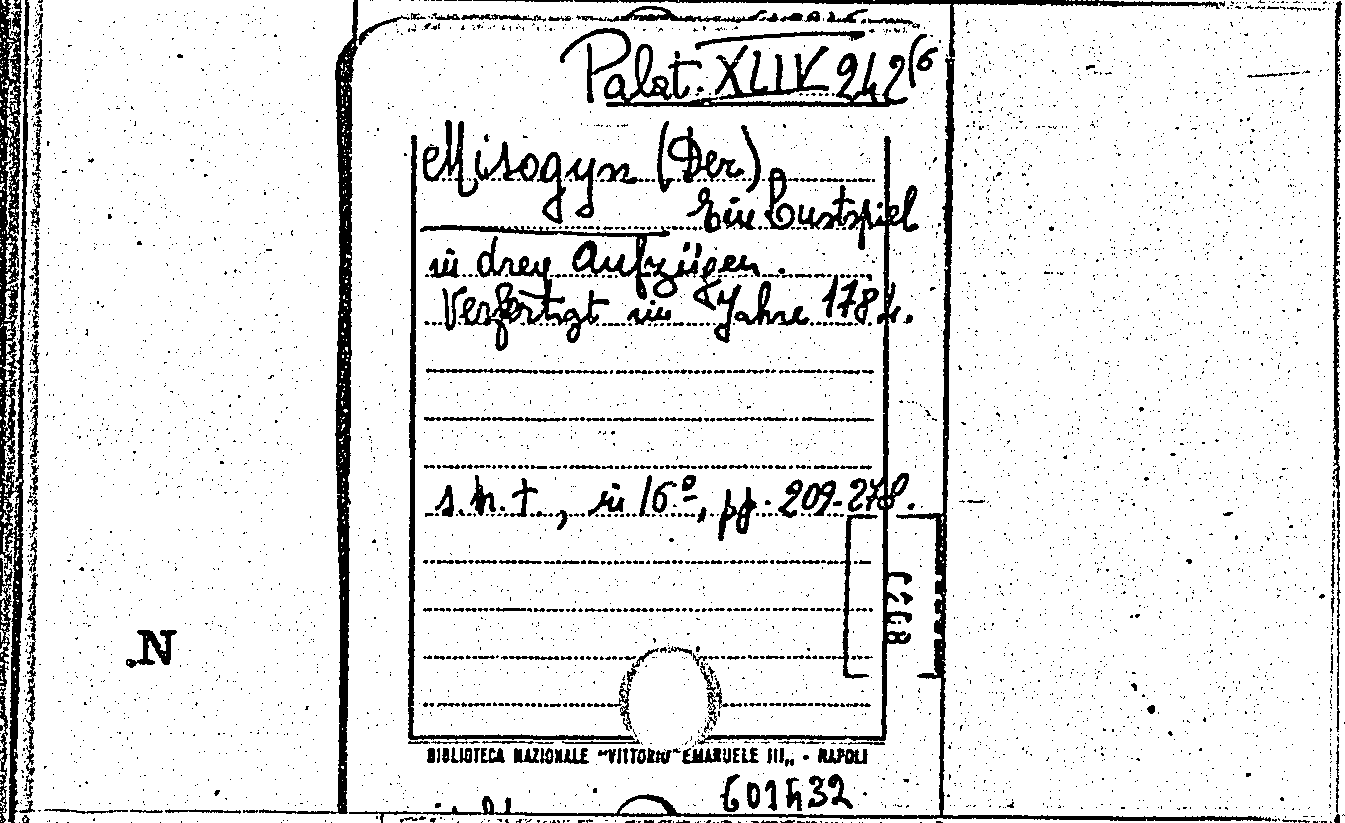 Palat. XLIV 242(6
Misogyn (Der)
Ein Lustspiel
in drey Aufzügen.
Verfertigt im Jahre 1784.
s.n.t., in 16º, pp. 209-278.
N.
BIBLIOTECA NAZIONALE "VITTORIO EMANUELE III" - NAPOLI
601432